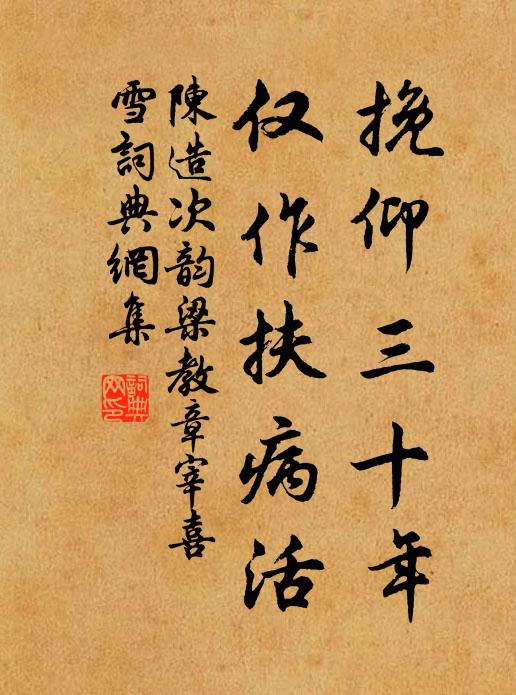 挽仰三十年
仅作扶病活
陳造次韵梁教章宰喜
雪詞典網集
詞典
网印